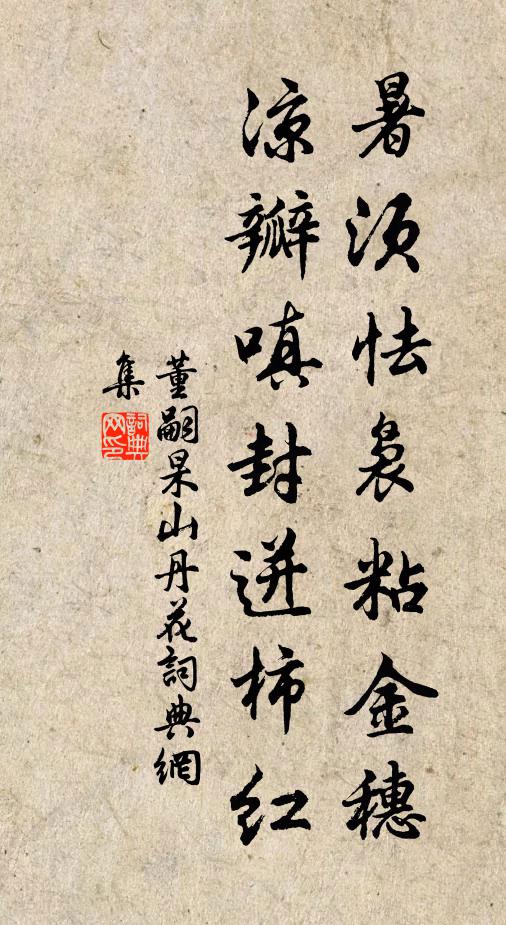 暑须怯袅粘金穗
凉瓣嗔封迸柿红
董嗣杲山丹花詞典網
集
詞典网印